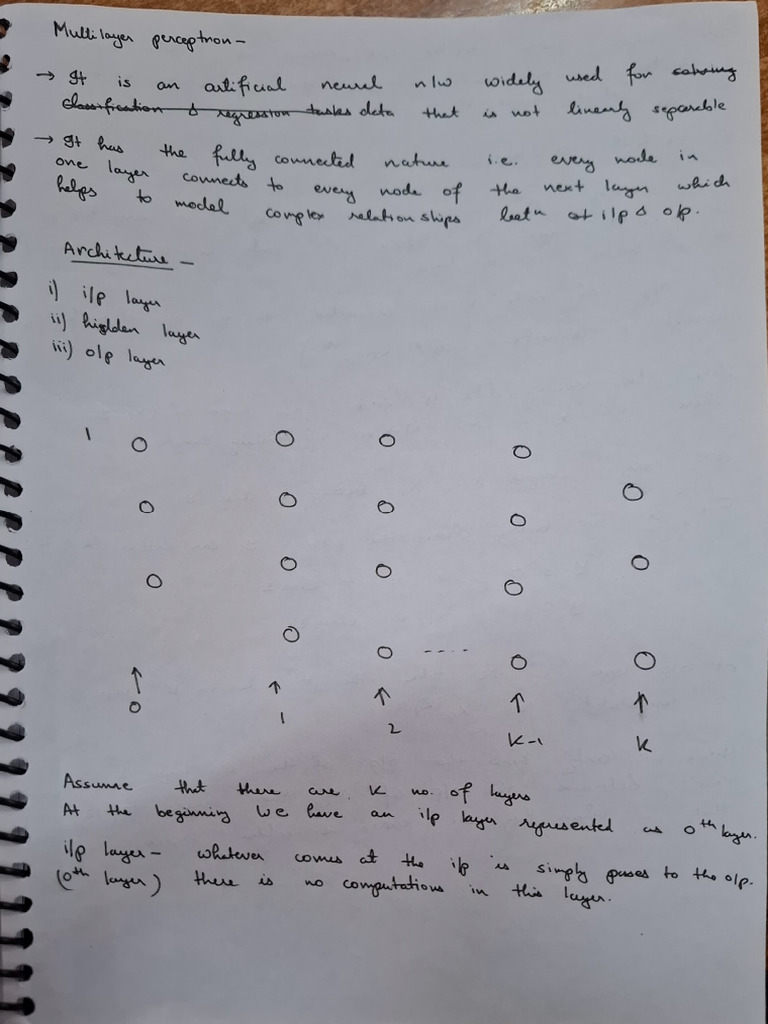 Multilayer perceptron –
→ It is an artificial neural n/w widely used for solving
classification & regression tasks data that is not linearly separable
→ It has the fully connected nature i.e. every node in
one layer connects to every node of the next layer which
helps to model complex relationships betn i/p & o/p.
Architecture –
i) i/p layer
ii) hidden layer
iii) o/p layer
1
....
0 1 2 K-1 K
Assume that there are K no. of layers
At the beginning we have an i/p layer represented as 0th layer.
i/p layer – whatever comes at the i/p is simply passes to the o/p.
(0th layer) there is no computations in this layer.